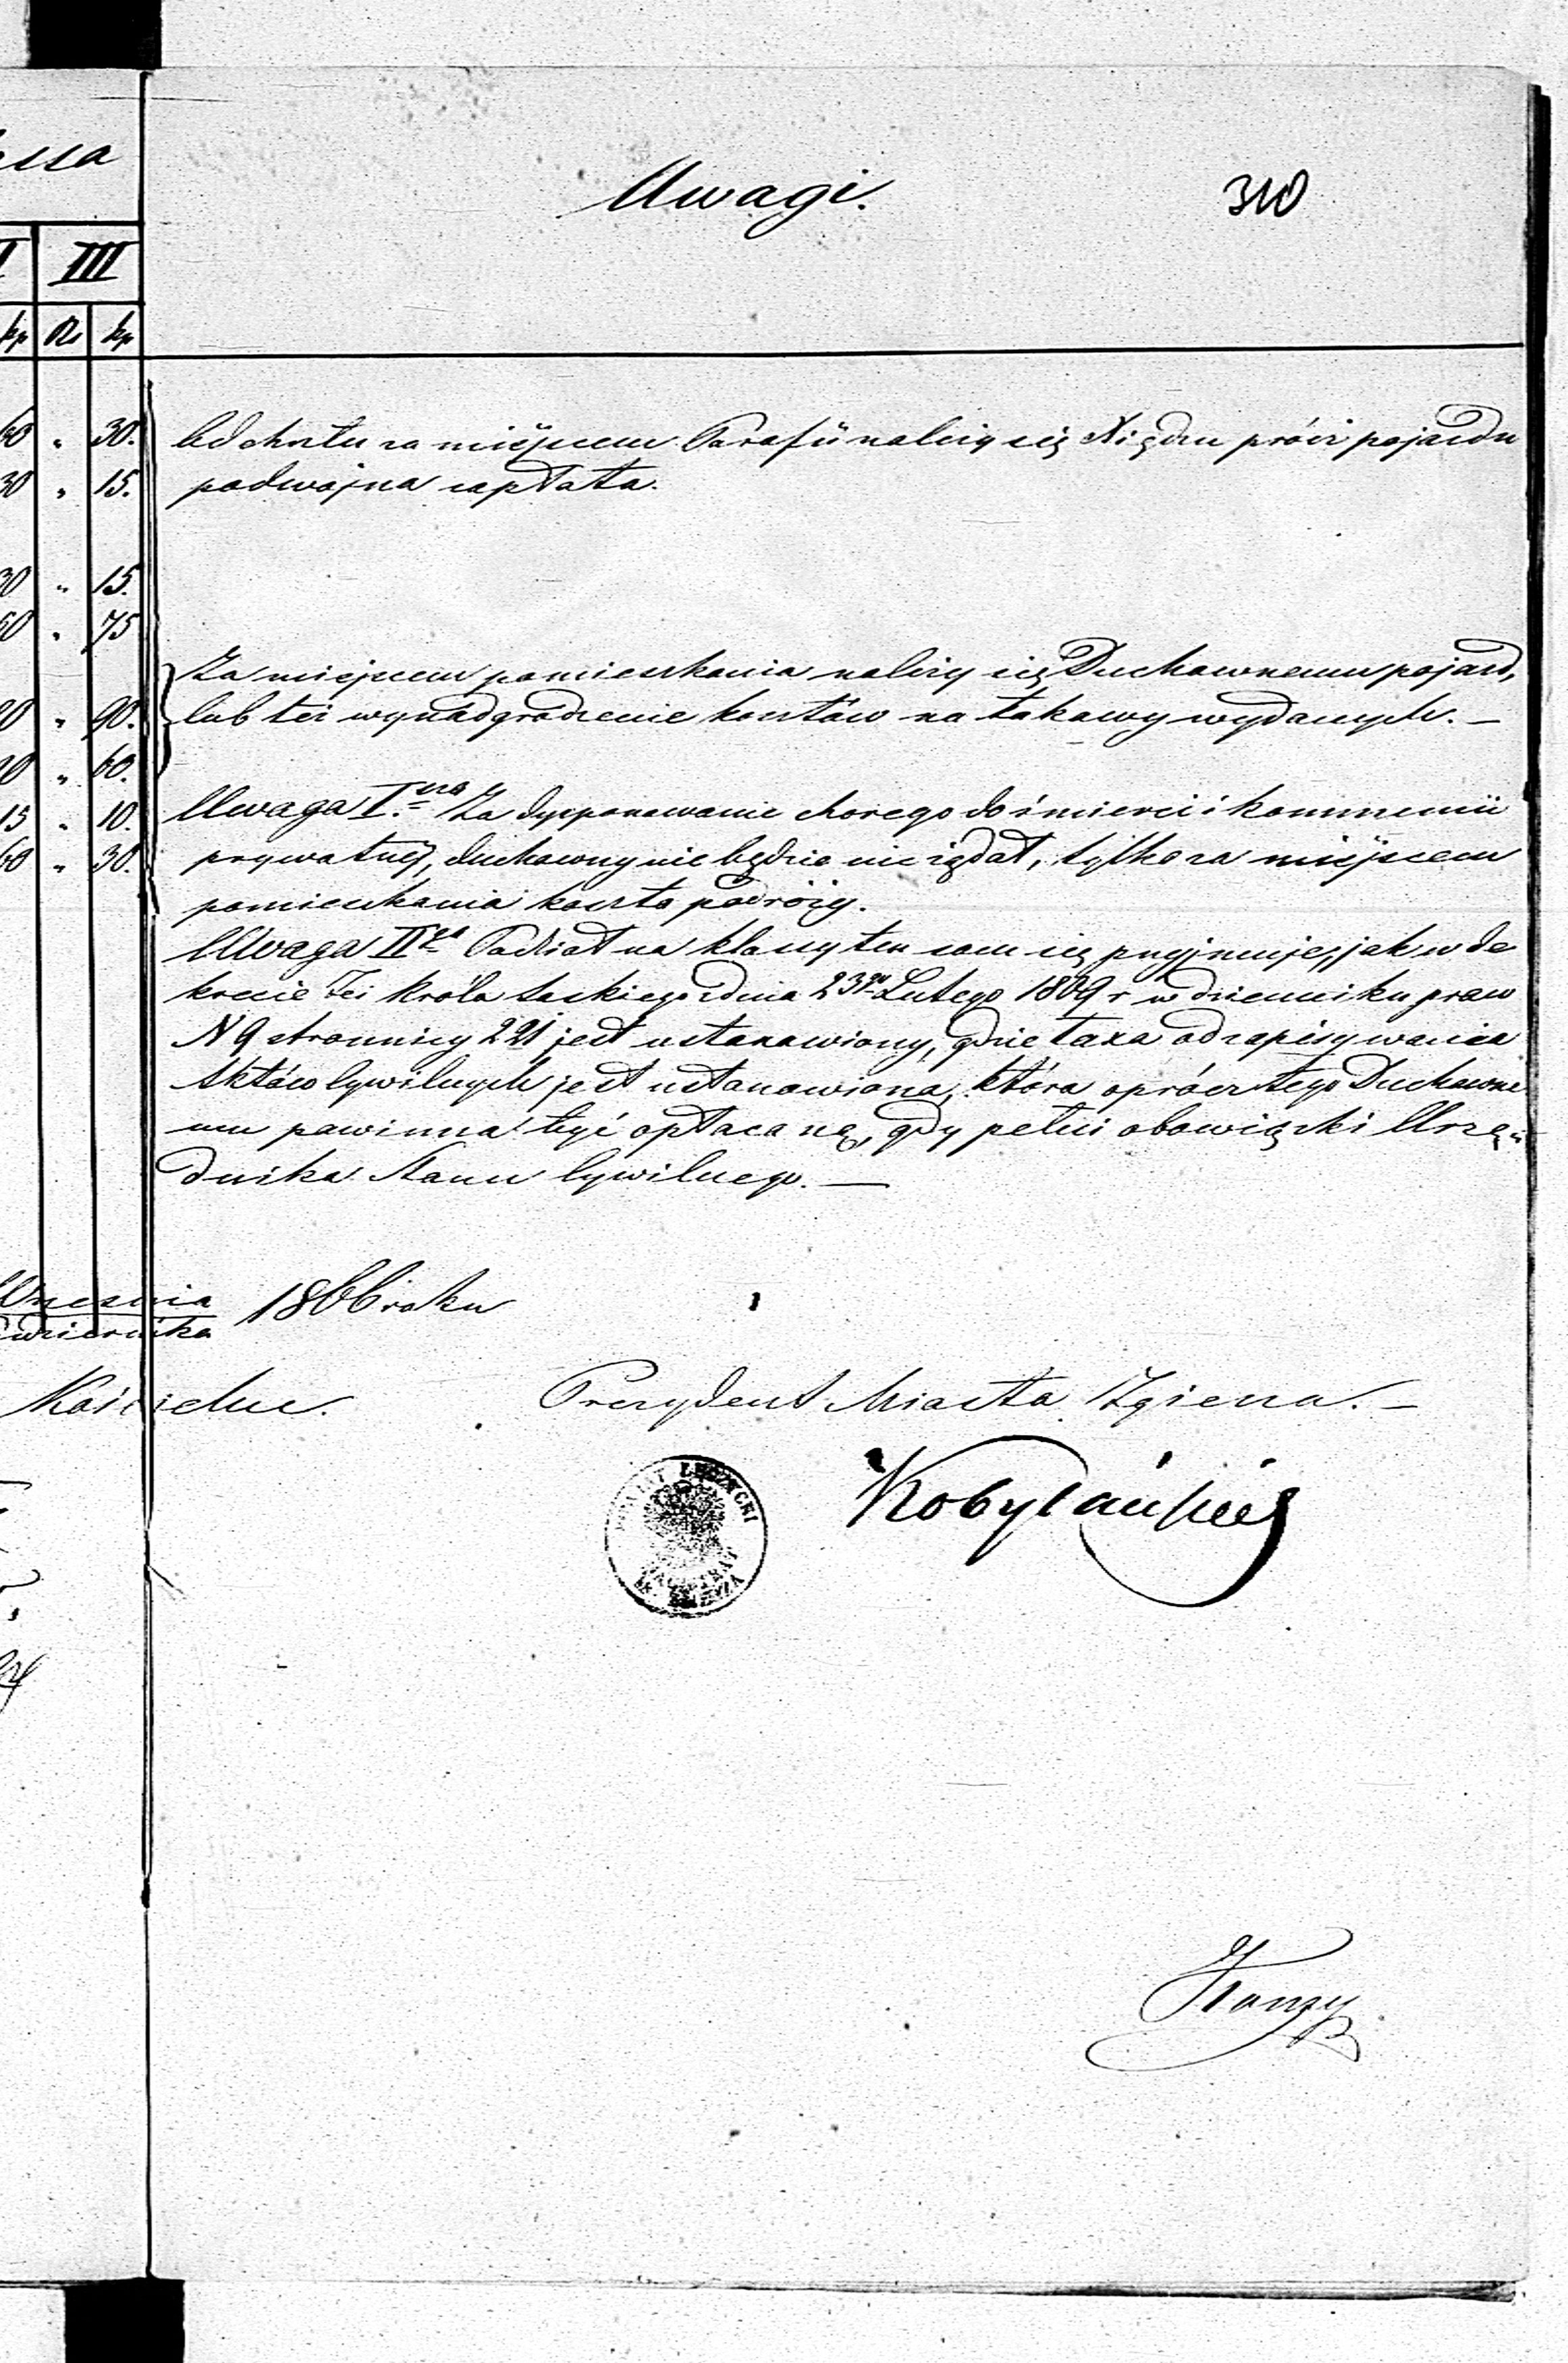 Uwagi. 310
III
kp Rs kp
30.
30 " 15.
30 " 15.
" 75
" 90.
" 60.
15 " 10.
60 " 30.
Od chrztu za miéjscem Parafii należy się Xiędzu prócz pojazdu
podwójna zapłata.
Za miejscem pomieszkania należy się Duchownemu pojazd,
lub też wynadgrodzenie kosztów na takowy wydanych. —
Uwaga I.ma Za dysponowanie chorego do śmierci i kommunii
prywatnéj, duchowny nie będzie nic żądał, tylko za miéjscem
pomieszkania koszta podróży.
Uwaga IIga Podział na klassy ten sam się przyjmuje, jak w de
krecie Króla Saskiego z dnia 23go Lutego 1809 r w dzienniku praw
N 9 stronnicy 221 jest ustanowiony, gdzie taxa od zapisywania
Aktów Cywilnych jest ustanowiona, która oprócz tego Duchowne
mu powinna być opłacaną, gdy pełni obowiązki Urzę„
dnika Stanu Cywilnego. —
Września
Października 1866 roku
Kościelne. Prezydent Miasta Zgierza. —
Kobyłański